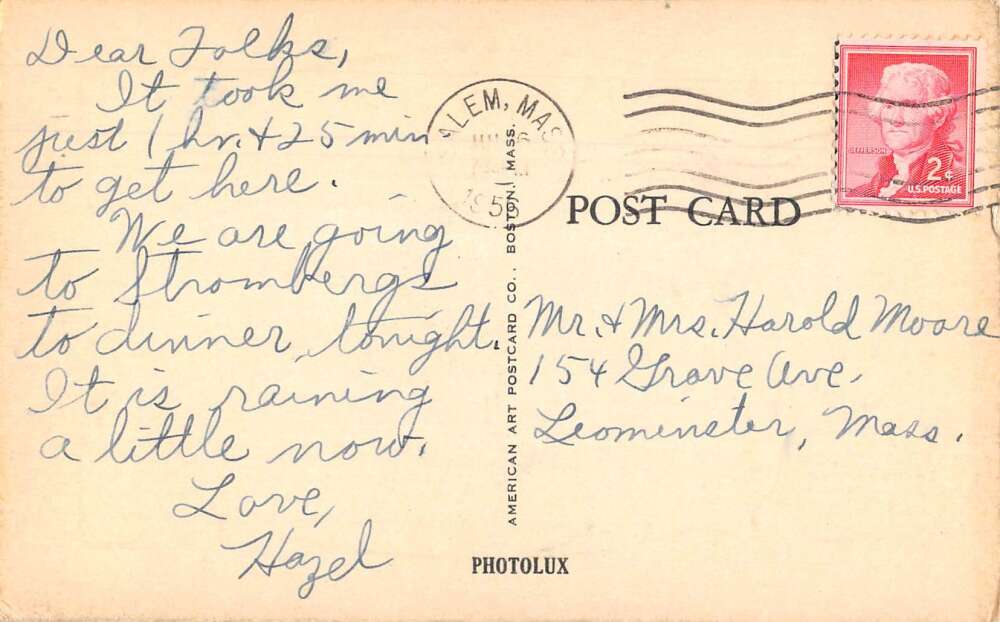 Dear Folks,
It took me
just 1 hr. + 25 min
to get here.
We are going
to Strombergs
to dinner tonight.
It is raining
a little now.
Love,
Hazel
LEM, MASS
195
JEFFERSON
2¢
U.S. POSTAGE
POST CARD
Mr. + Mrs. Harold Moore
154 Grove Ave.
Leominster, Mass.
AMERICAN ART POSTCARD CO., BOSTON, MASS.
PHOTOLUX